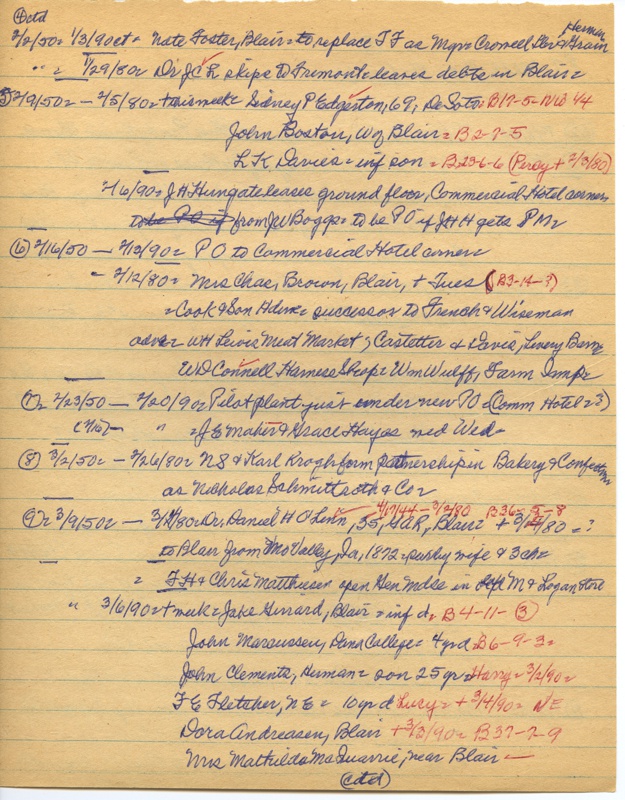 ④ctd
2/2/50= 1/3/90ct= Nate Foster, Blair= to replace TF as Mgr= Crowell Lbr & Grain Herman
" = 1/29/80= Dr JCL skips to Fremont= leaves debts in Blair=
⑤ 2/9/50= — 2/5/80= + this week= Sidney P Edgerton, 69, DeSoto= B17-5-NW 1/4
John Boston, W of Blair= B2-7-5
L K Davies= inf son = B23-6-6 (Percy + 2/3/80)
2/6/90= J H Hungate leases ground floor, Commercial Hotel corner
to be PO if from JW Boggs= to be PO if JHH gets PM=
⑥ 2/16/50 — 2/13/90= PO to Commercial Hotel corner=
- 2/12/80= Mrs Chas, Brown, Blair, + Tues (B3-14-?)
= Cook & Son Hdwe= successor to French & Wiseman
adv= WH Lewis Meat Market; Castetter & Davis, Livery Barn
WD Connell Harness Shop= Wm Wulff, Farm Imp=
⑦= 2/23/50 — 2/20/90= Pilot plant just under new PO= (Comm Hotel=?)
(2/16)— " = J E Maher & Grace Hayes med Wed=
⑧ 3/2/50= — 2/26/80= NS & Karl Krogh form partnership in Bakery & Confection
as Nicholas Schmittroth & Co=
⑨= 3/9/50= — 3/4/80= Dr. Daniel H O'Linn, 35, GAR, Blair= 4/17/44 - 3/2/80 B36-5-8 + 3/2/80=?
to Blair from Mo Valley, Ia, 1872= surby wife & 3ch=
= F H & Chris Matthiesen open Gen Mdse in old M & Logan Store
" 3/6/90= + week= Jake Girrard, Blair= inf d= B4-11-③
John Marcussen, Dana College= 4yrd B6-9-3=
John Clements, Herman= son 25 yr= Harry= 3/2/90=
F E Fletcher, NE= 10yr d Lucy= + 3/4/90= NE
Dora Andreasen, Blair + 3/3/90= B37-7-9
Mrs Mathilda McQuarrie, near Blair —
(ctd)